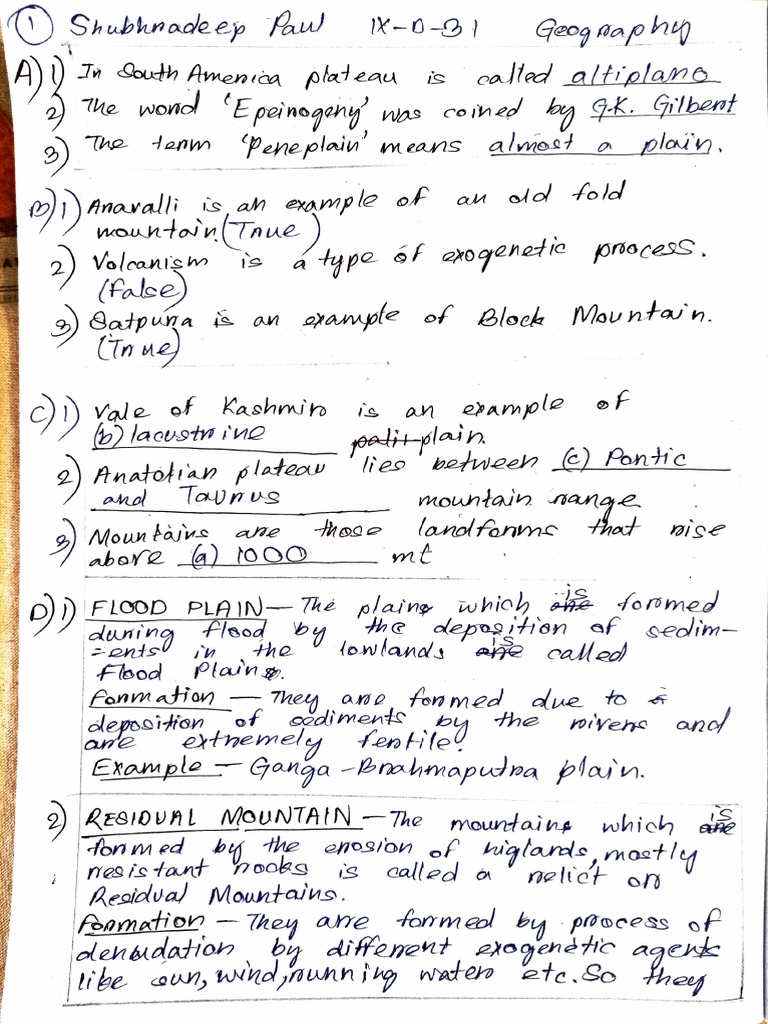 1 Shubhradeep Paul IX-D-31 Geography
A) 1) In South America plateau is called altiplano
2) The word 'Epeirogeny' was coined by G.K. Gilbert
3) The term 'Peneplain' means almost a plain.
B) 1) Aravalli is an example of an old fold
mountain. (True)
2) Volcanism is a type of exogenetic process.
(False)
3) Satpura is an example of Block Mountain.
(True)
C) 1) Vale of Kashmir is an example of
(b) lacustrine plain.
2) Anatolian plateau lies between (c) Pontic
and Taurus mountain range
3) Mountains are those landforms that rise
above (a) 1000 mt
D) 1) FLOOD PLAIN — The plain which is formed
during flood by the deposition of sedim-
=ents in the lowlands is called
Flood Plain.
Formation — They are formed due to
deposition of sediments by the rivers and
are extremely fertile.
Example — Ganga-Brahmaputra plain.
2) RESIDUAL MOUNTAIN — The mountain which is
formed by the erosion of higlands, mostly
resistant rocks is called a relict or
Residual Mountains.
Formation — They are formed by process of
denudation by different exogenetic agents
like sun, wind, running water etc. So they